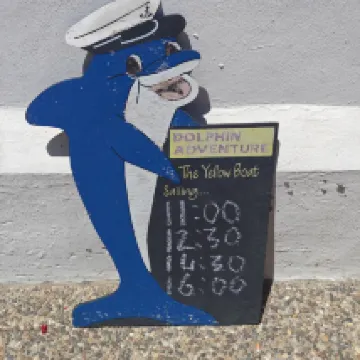 DOLPHIN
ADVENTURE
The Yellow Boat
Sailing...
11:00
12:30
14:30
16:00